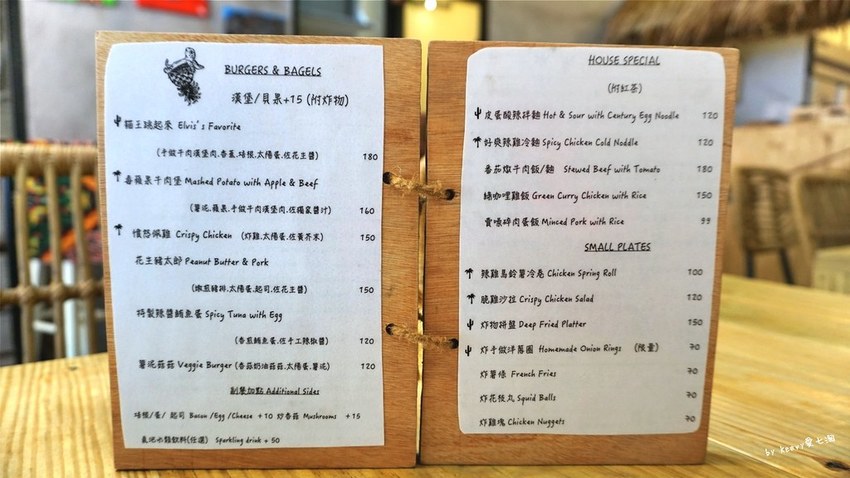 BURGERS & BAGELS
漢堡/貝果+15 (附炸物)
貓王跳起來 Elvis's Favorite
(手做牛肉漢堡肉.香蕉.培根.太陽蛋.佐花王醬) 180
春蘋果牛肉堡 Mashed Potato with Apple & Beef
(薯泥.蘋果.手做牛肉漢堡肉.佐獨家醬汁) 160
憤怒佩雞 Crispy Chicken (炸雞.太陽蛋.佐黃芥末) 150
花王豬太郎 Peanut Butter & Pork
(嫩煎豬排.太陽蛋.起司.佐花王醬) 150
特製辣醬鮪魚蛋 Spicy Tuna with Egg
(香煎鮪魚蛋.佐手工辣椒醬) 120
薯泥菇菇 Veggie Burger (香菇奶油菇菇.太陽蛋.薯泥) 120
副餐加點 Additional Sides
培根/蛋/ 起司 Bacon /Egg /Cheese + 10 炒香菇 Mushrooms + 15
氣泡水類飲料(任選) Sparkling drink + 50
HOUSE SPECIAL
(附紅茶)
皮蛋酸辣拌麵 Hot & Sour with Century Egg Noodle 120
好爽辣雞冷麵 Spicy Chicken Cold Noddle 120
番茄燉牛肉飯/麵 Stewed Beef with Tomato 180
綠咖哩雞飯 Green Curry Chicken with Rice 150
碎肉蛋飯 Minced Pork with Rice 95
SMALL PLATES
辣雞馬鈴薯冷卷 Chicken Spring Roll 100
脆雞沙拉 Crispy Chicken Salad 120
炸物拼盤 Deep Fried Platter 150
炸手做洋蔥圈 Homemade Onion Rings (限量) 70
炸薯條 French Fries 70
炸花枝丸 Squid Balls 70
炸雞塊 Chicken Nuggets 70